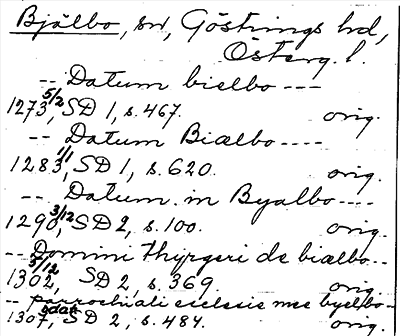 Bjälbo, sn, Göstrings hd,
Österg. l.
-- Datum bielbo ----
1273 5/2, SD 1, s. 467. orig.
-- Datum Biælbo ----
1283 1/1, SD 1, s. 620. orig.
-- Datum in Byalbo ----
1290 3/12, SD 2, s. 100. orig.
-- Domini thyrgeri de biælbo --
1302 3/12, SD 2, s. 369. orig.
-- parrochiali ecclesie mee byelbo --
1307 SD 2, s. 484. orig.